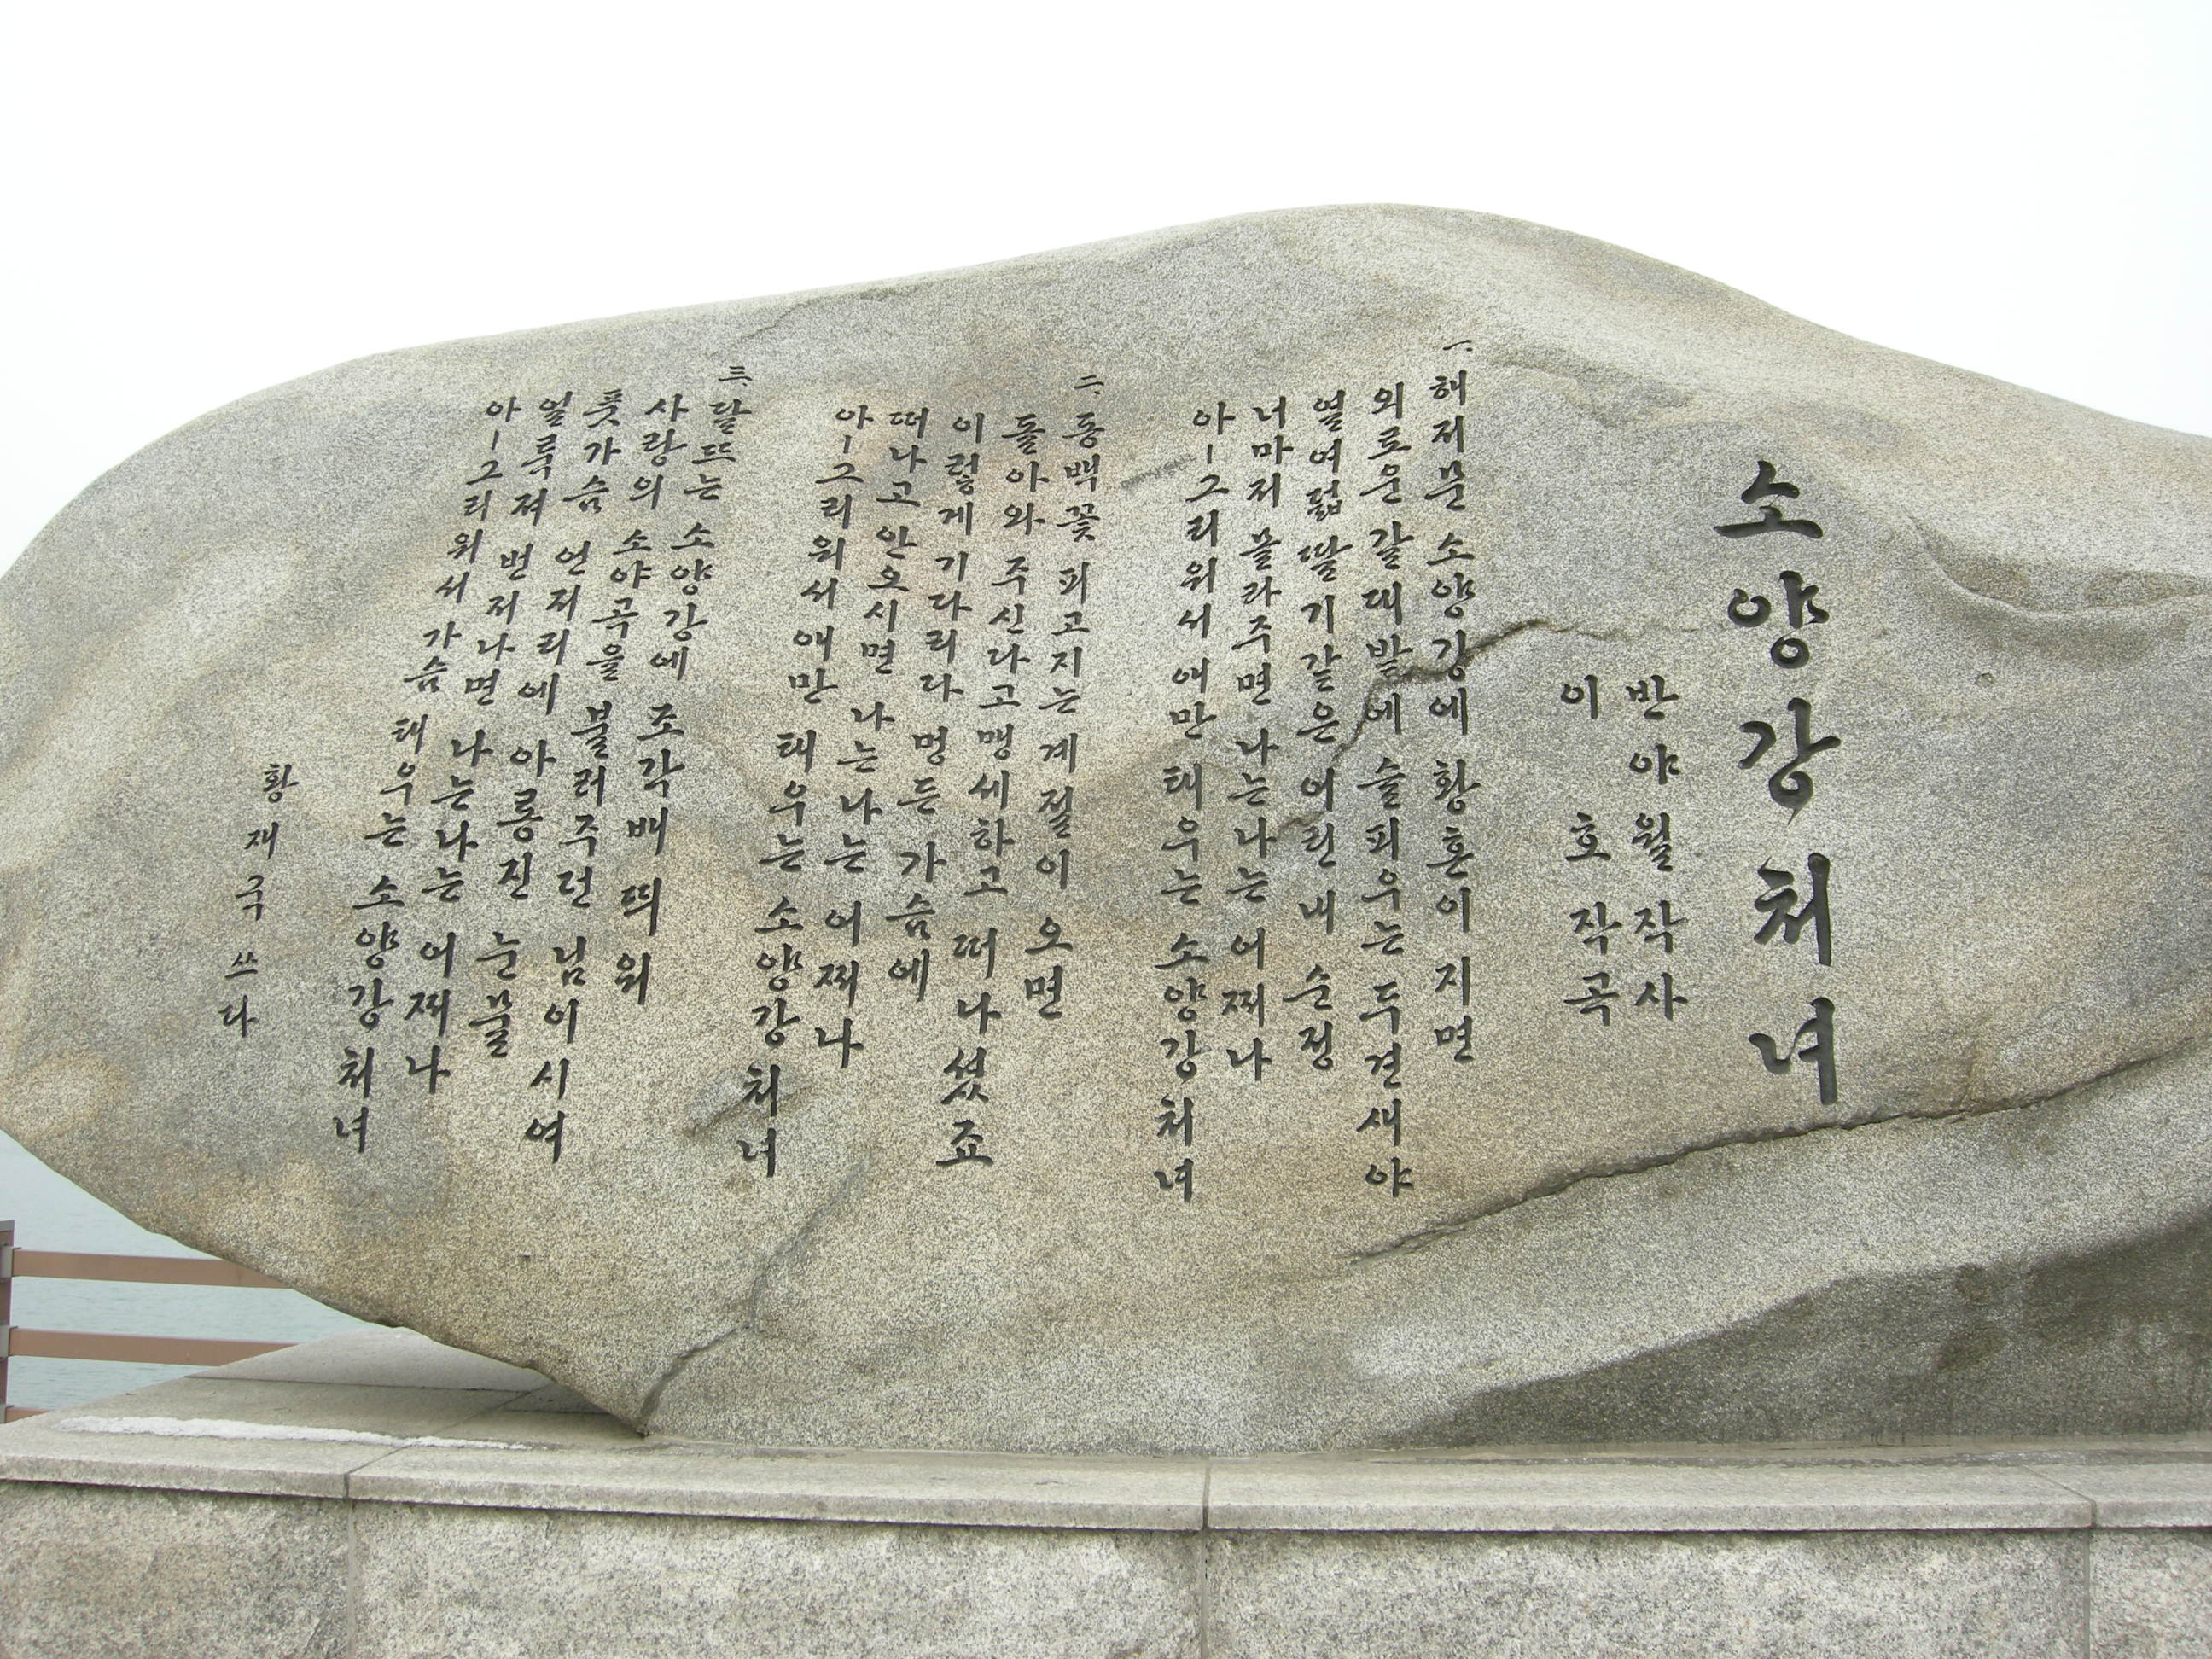 소양강 처녀
반야월 작사
이호 작곡
一. 해저문 소양강에 황혼이 지면
외로운 갈대밭에 슬피우는 두견새야
열여덟 딸기같은 어린 내 순정
너마저 몰라주면 나는나는 어쩌나
아-그리워서 애만 태우는 소양강 처녀
二. 동백꽃 피고지는 계절이 오면
돌아와 주신다고 맹세하고 떠나셨죠
이렇게 기다리다 멍든 가슴에
떠나고 안오시면 나는나는 어쩌나
아-그리워서 애만 태우는 소양강 처녀
三. 달뜨는 소양강에 조각배 띄워
사랑의 소야곡을 불러주던 님이시여
풋가슴 언저리에 아롱진 눈물
얼룩져 번저나면 나는나는 어쩌나
아-그리워서 가슴 태우는 소양강 처녀
황재국 쓰다